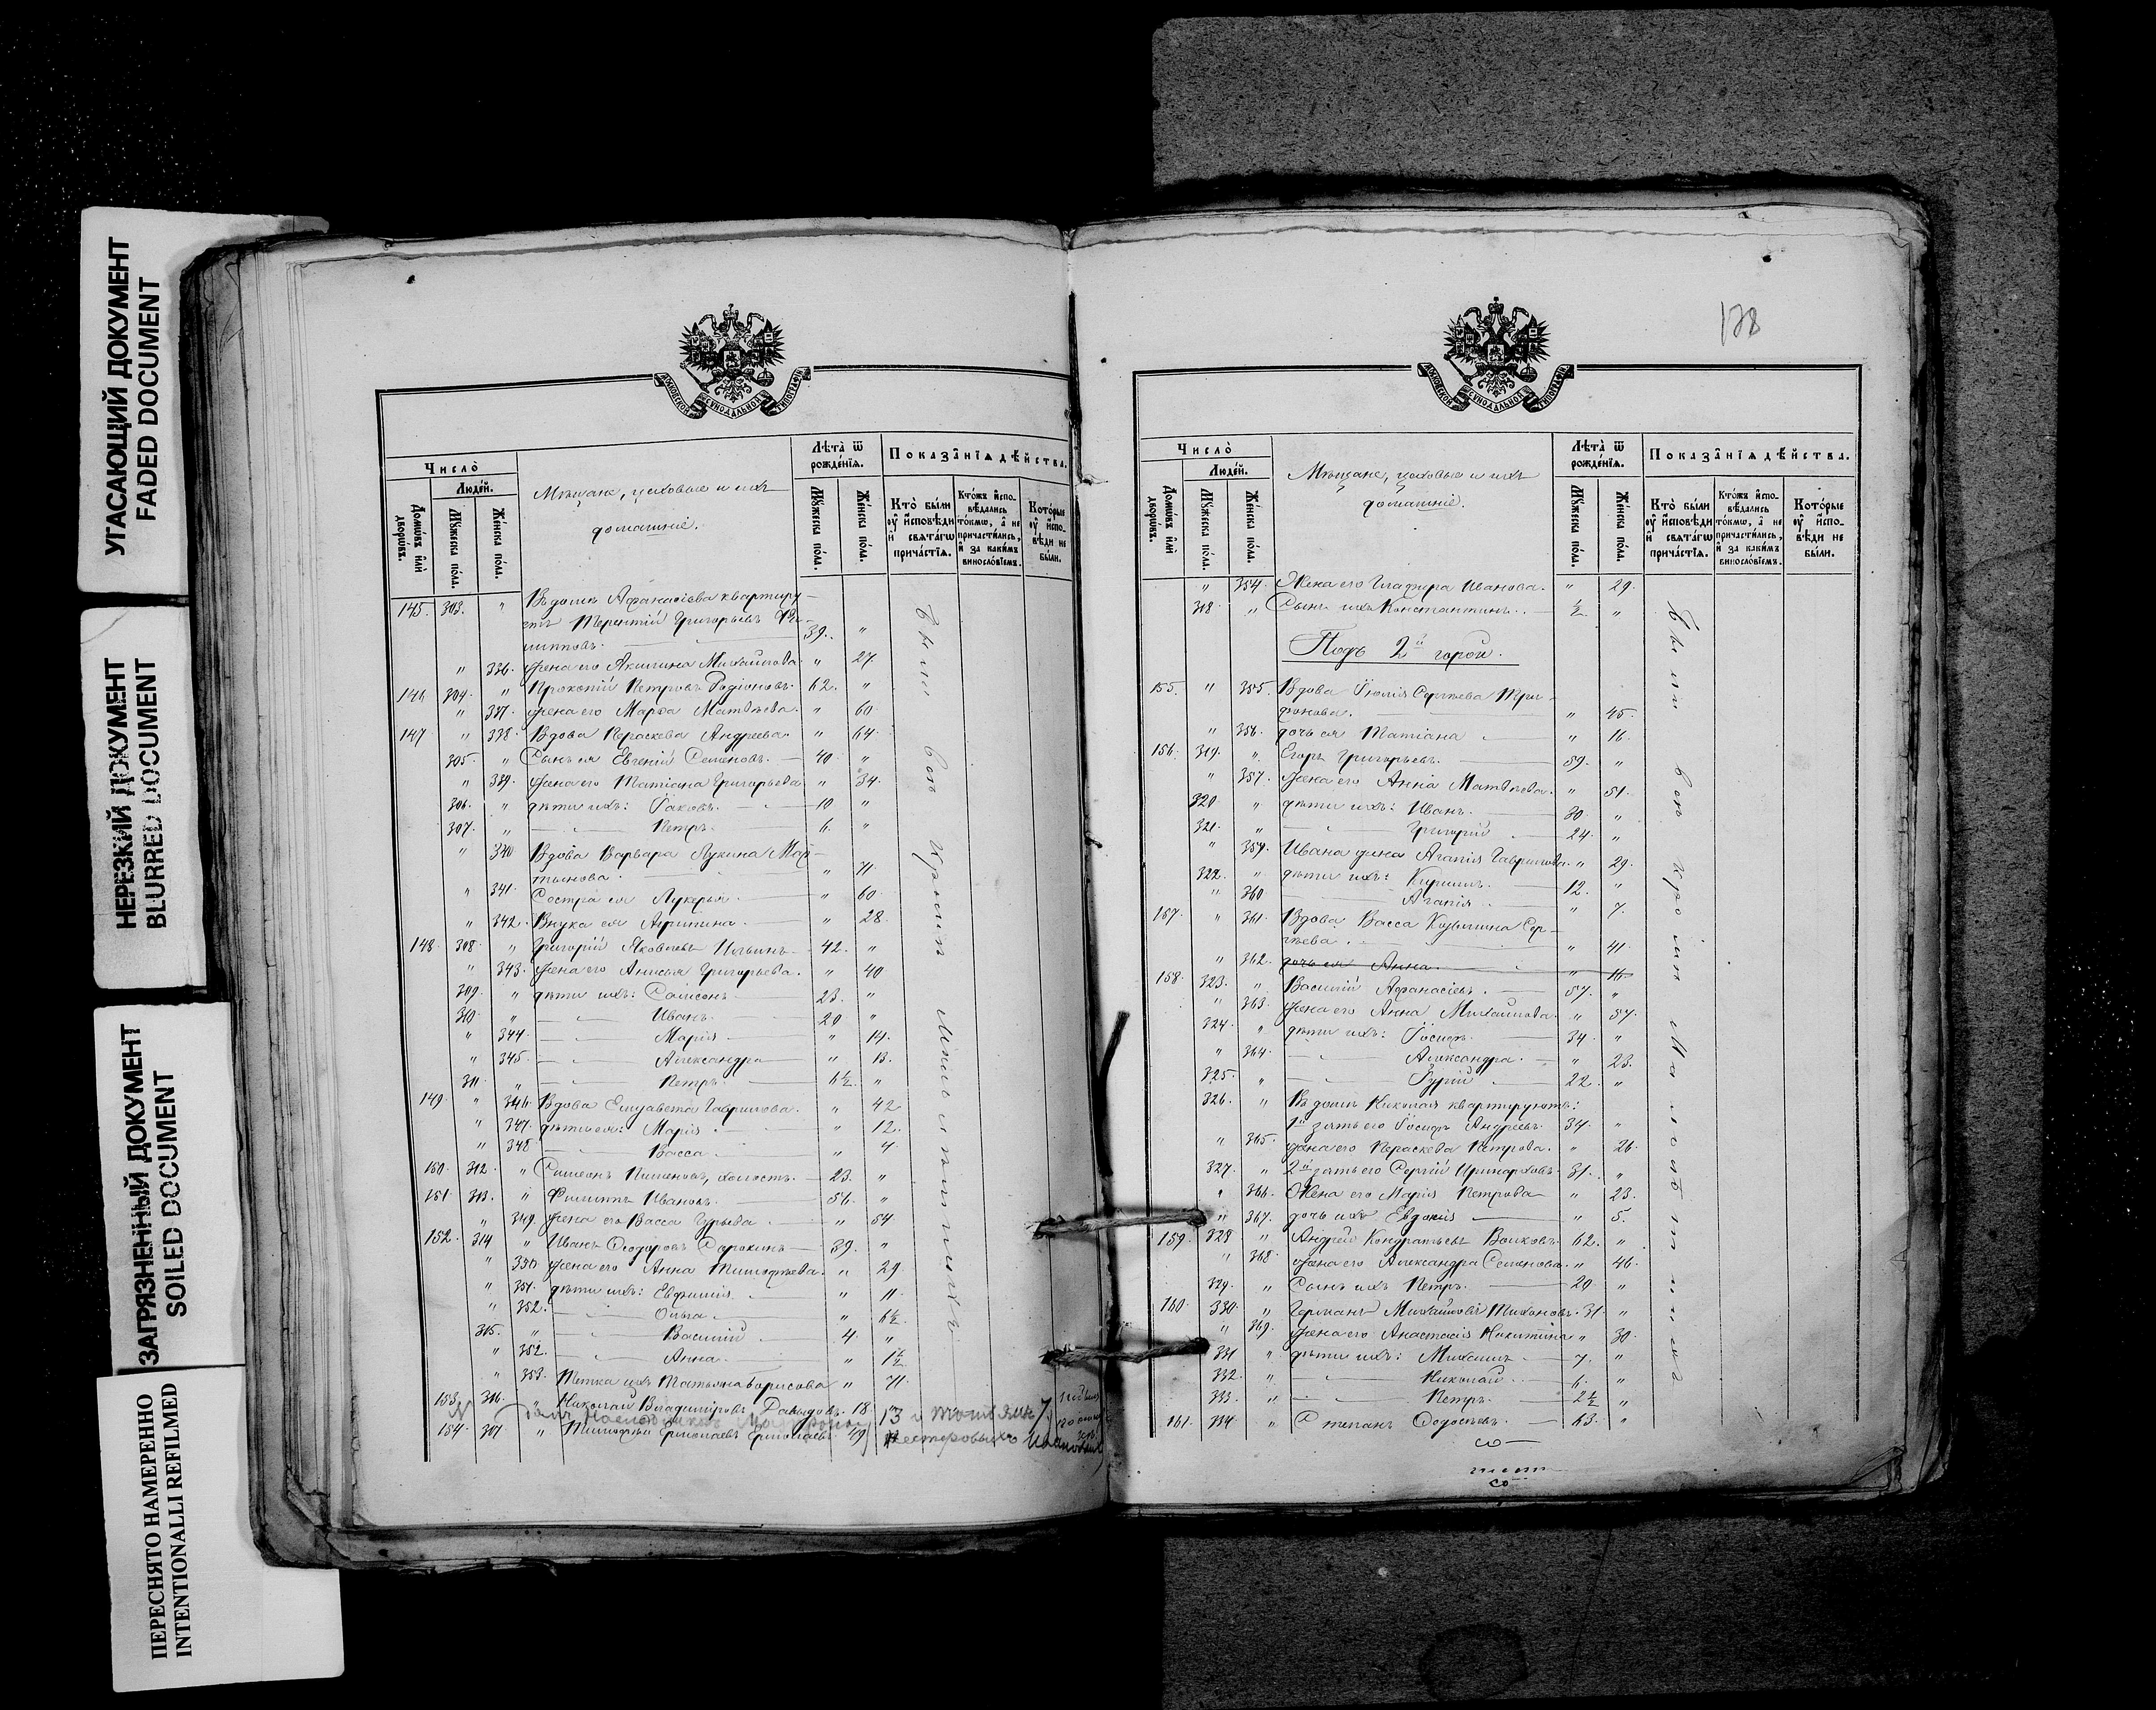 УГАСАЮЩИЙ ДОКУМЕНТ
FADED DOCUMENT
НЕРЕЗКИЙ ДОКУМЕНТ
BLURRED DOCUMENT
ЗАГРЯЗНЕННЫЙ ДОКУМЕНТ
SOILED DOCUMENT
ПЕРЕСНЯТО НАМЕРЕННО
INTENTIONALLI REFILMED
МОСКОВСКОЙ СѴНОДАЛЬНОЙ ТИПОГРАФІИ
Число̀
Люде́й.
Домѡ́въ и҆лѝ дворѡ́въ.
Мꙋ́жеска по́ла.
Же́нска по́ла.
Мѣщане, цеховые и ихъ
домашніе.
Лѣта̀ ѿ рожде́нїѧ.
Мꙋ́жеска по́ла.
Же́нска по́ла.
Показа̑нїѧ дѣ́йства.
Кто̀ бы́ли ᲂу҆ и҆сповѣ́ди и҆ свѧта́гѡ прича́стїѧ.
Кто́жъ и҆спо-вѣ́дались то́кмѡ, а҆ не причасти́лись, и҆ за каки́мъ винослѡ́вїемъ.
Кото́рые ᲂу҆ и҆спо-вѣ́ди не бы́ли.
145. 303. " Въ домѣ Афанасіева квартиру-
етъ Терентій Григорьевъ Фи-
липповъ. 39. "
" 336. Жена его Акилина Михайлова. " 27.
146 304. " Прокопій Петровъ Родіоновъ. 62. "
" 337. Жена его Марѳа Матвѣева. " 60.
147 " 338. Вдова Параскева Андреева. " 64.
305. " Сынъ ея Евгеній Семеновъ. 40. "
" 339. Жена его Татіана Григорьева " 34.
306. " Дѣти ихъ: Іаковъ. 10 "
307. " Петръ. 6. "
" 340 Вдова Варвара Лукина Мар-
тынова. " 71.
" 341. Сестра ея Лукерья. " 60.
" 342. Внука ея Агрипина. " 28.
148. 308. " Григорій Яковлевъ Ильинъ. 42. "
" 343. Жена его Анисья Григорьева. " 40
309. " Дѣти ихъ: Самсонъ 23. "
310. " Иванъ. 20 "
" 344. Марія " 14.
" 345. Александра " 13.
311. " Петръ. 6½. "
149. " 346. Вдова Елизавета Гаврилова. " 42
" 347. Дѣти ея: Марія. " 12.
" 348 Васса " 4.
150. 312. " Симеонъ Пименовъ, холостъ. 23. "
151. 313. " Филиппъ Ивановъ. 56. "
" 349. Жена его Васса Гурьева " 54
152. 314 " Иванъ Ѳеодоровъ Сорокинъ 39. "
" 350 Жена его Анна Тимоѳеева. " 29
" 351. Дѣти ихъ: Евфимія. " 11.
" 352. Ольга " 6½.
315. " Василій 4. "
" 352. Анна. " 1½
" 353. Тетка ихъ Татьяна Борисова " 71.
153. 316. " Николай Владиміровъ Давыдовъ. 18. "
154. 307. " Тимоѳей Ермолаевъ Ермолаевъ 49
Были всѣ кромѣ малолѣтнихъ
178
МОСКОВСКОЙ СѴНОДАЛЬНОЙ ТИПОГРАФІИ
Число̀
Люде́й.
Домѡ́въ и҆лѝ дворѡ́въ.
Мꙋ́жеска по́ла.
Же́нска по́ла.
Мѣщане, цеховые и ихъ
домашніе.
Лѣта̀ ѿ рожде́нїѧ.
Мꙋ́жеска по́ла.
Же́нска по́ла.
Показа̑нїѧ дѣ́йства.
Кто̀ бы́ли ᲂу҆ и҆сповѣ́ди и҆ свѧта́гѡ прича́стїѧ.
Кто́жъ и҆спо-вѣ́дались то́кмѡ, а҆ не причасти́лись, и҆ за каки́мъ винослѡ́вїемъ.
Кото́рые ᲂу҆ и҆спо-вѣ́ди не бы́ли.
" 354. Жена его Глафира Иванова. " 29.
318. " Сынъ ихъ Константинъ. ½ "
Подъ 2й горой.
155. " 355. Вдова Іюлія Сергѣева Три-
фонова. " 45.
" 356. Дочь ея Татіана " 16.
156. 319. " Егоръ Григорьевъ. 59. "
" 357. Жена его Анна Матвѣева. " 51.
320 " Дѣти ихъ: Иванъ. 30. "
321. " Григорій 24. "
" 359. Ивана жена Агапія Гаврилова. " 29.
322. " Дѣти ихъ: Кириллъ. 12. "
" 360 Агапія. " 7.
157. " 361. Вдова Васса Козьмина Сер-
гѣева. " 41
" 362. Дочь ея Анна. " 16.
158. 323. " Василій Афанасіевъ. 57. "
" 363. Жена его Анна Михайлова. " 57.
324. " Дѣти ихъ: Іосифъ. 34. "
" 364. Александра. " 23.
325. " Гурій 22. "
326. " Въ домѣ Николая квартируютъ:
1й зять его Іосифъ Андреевъ. 34. "
" 365. Жена его Параскева Петрова. " 26.
327. " 2й зять его Сергій Иринарховъ. 31. "
" 366. Жена его Марія Петрова " 23.
" 367. Дочь ихъ Евдокія " 5.
159. 328 " Андрей Кондратьевъ Волковъ. 62. "
" 368. Жена его Александра Семенова. " 46.
329. " Сынъ ихъ Петръ. 20. "
160. 330. " Германъ Михайловъ Тихоновъ. 31 "
" 369. Жена его Анастасія Никитина " 30.
331 " Дѣти ихъ: Михаилъ. 7. "
332. " Николай. 6. "
333. " Петръ. 2½ "
161. 334. " Степанъ Ѳедосѣевъ. 63. "
Были всѣ кромѣ малолѣтнихъ